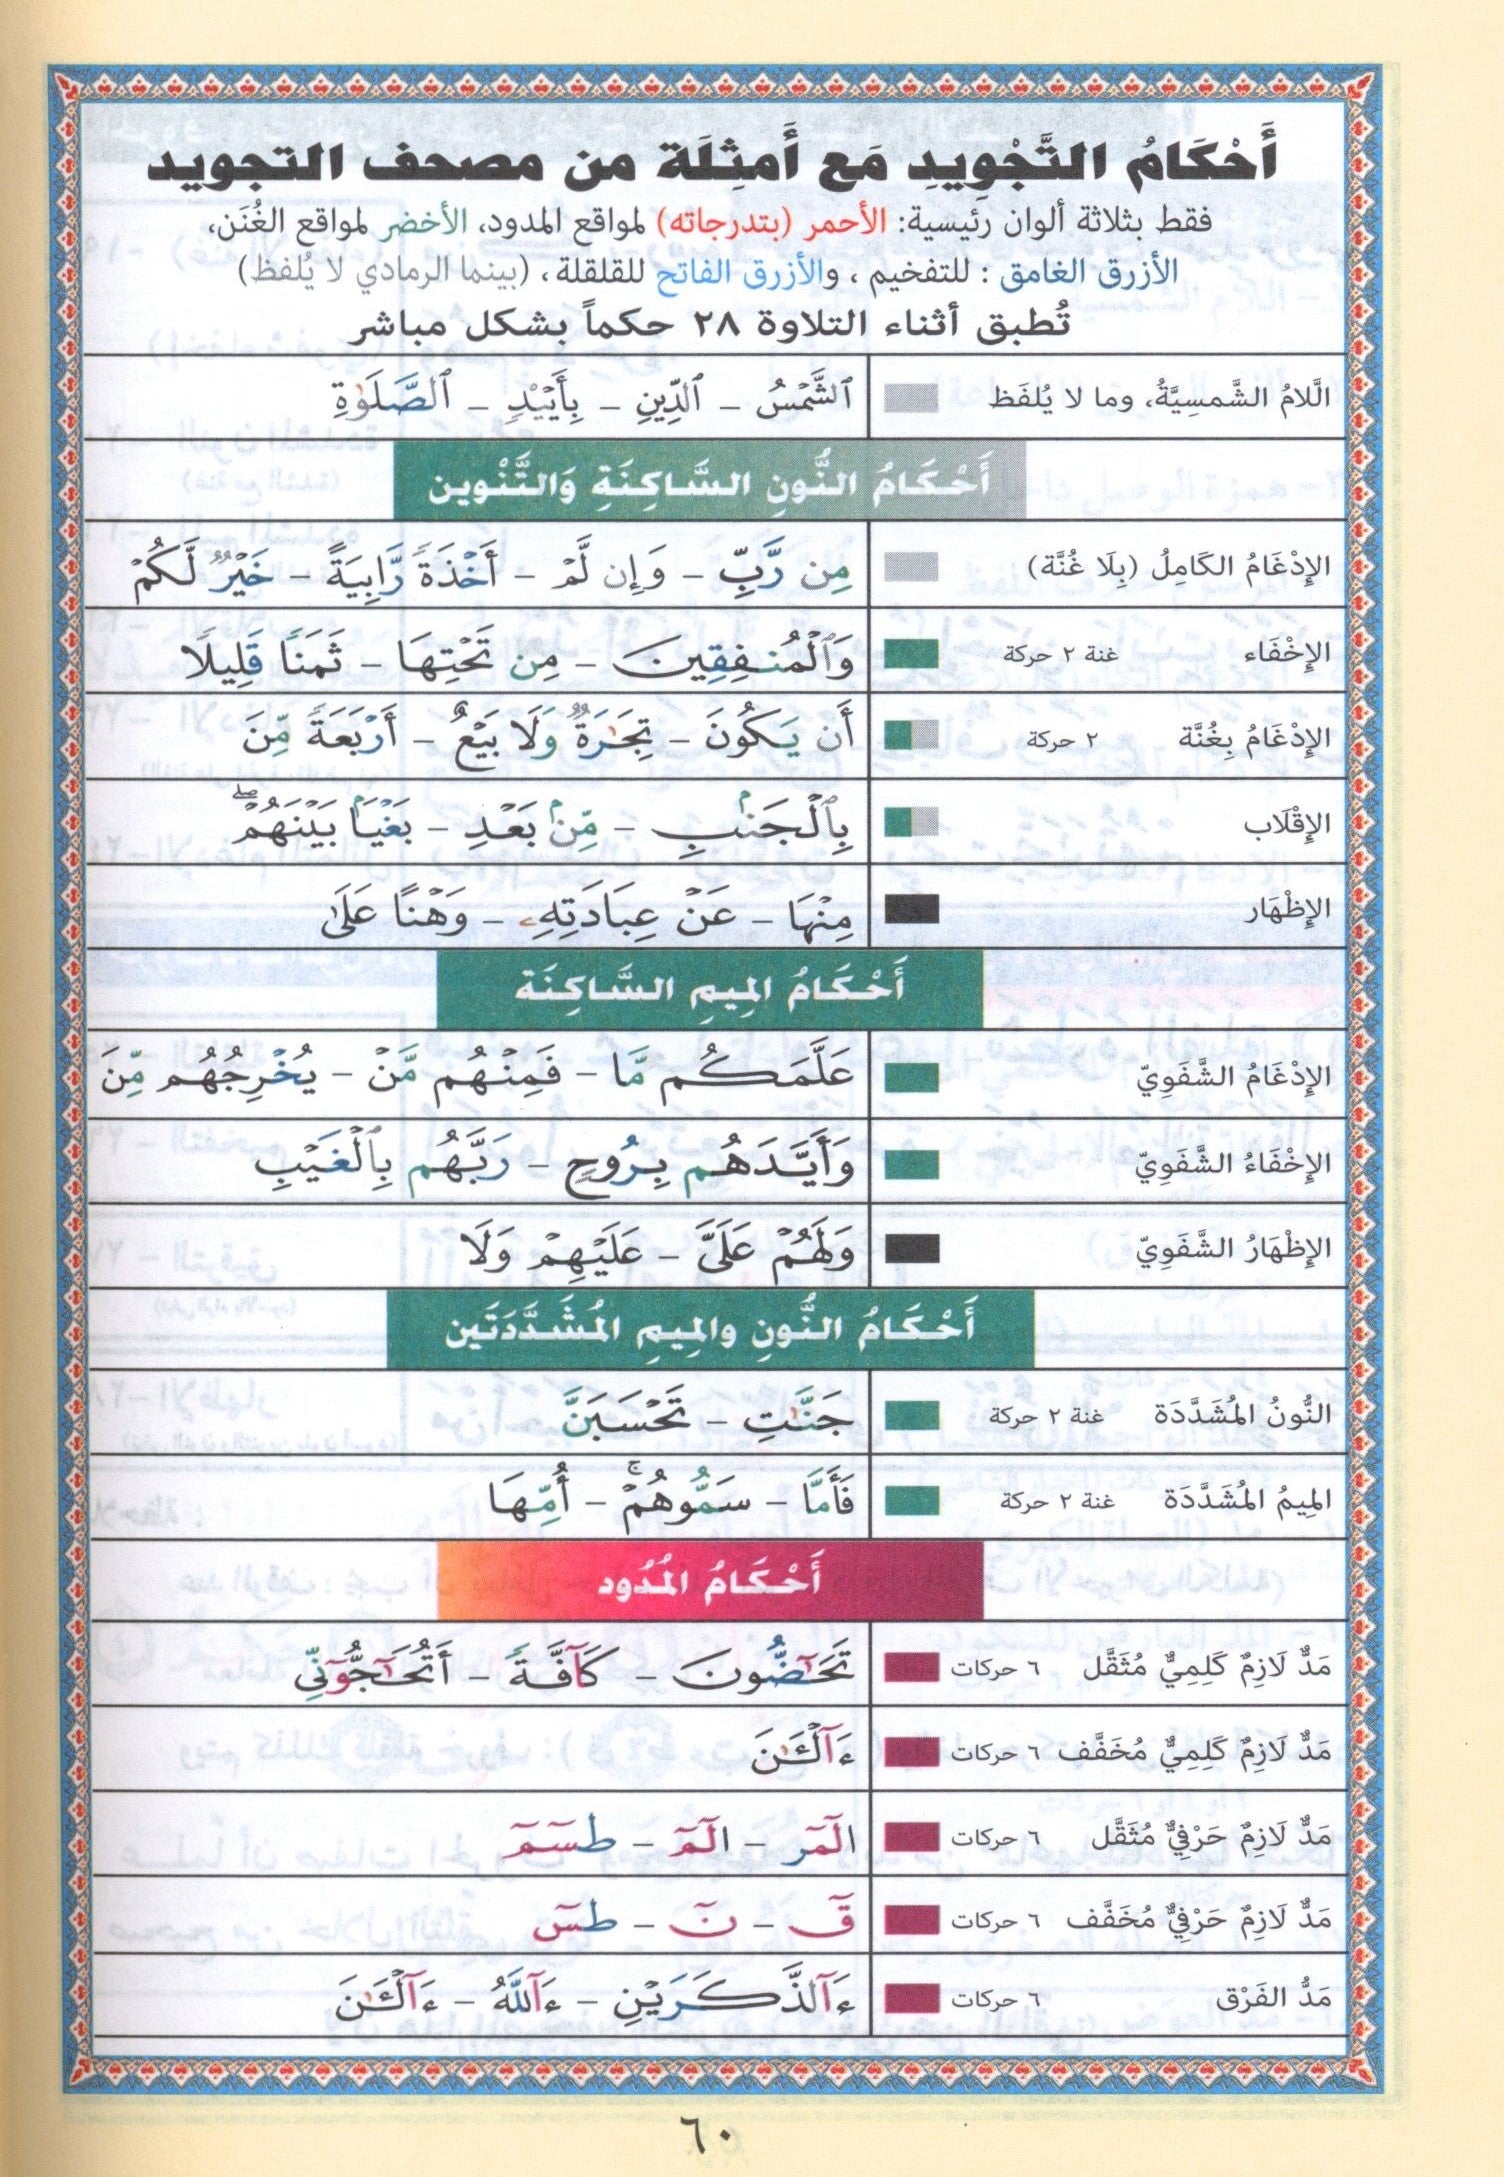 أَحْكَامُ التَّجْوِيدِ مَع أَمثِلَة من مصحف التجويد
فقط بثلاثة ألوان رئيسية: الأحمر (بتدرجاته) لمواقع المدود، الأخضر لمواقع الغُنَن،
الأزرق الغامق : للتفخيم ، والأزرق الفاتح للقلقلة، (بينما الرمادي لا يُلفظ)
تُطبق أثناء التلاوة ٢٨ حكماً بشكل مباشر
الَّلامُ الشَّمسِيَّةُ، وما لا يُلفَظ ٱلشَّمْسُ - ٱلدِّينِ - بِأَيْيْدٍ - ٱلصَّلَوٰةِ
أَحْكَامُ النُّونِ السَّاكِنَةِ وَالتَّنْوين
الإِدْغَامُ الكَامِلُ (بِلَا غُنَّة) مِن رَّبِّ - وَإِن لَّمْ - أَخْذَةً رَّابِيَةً - خَيْرٌ لَّكُمْ
الإِخْفَاء غنة ٢ حركة وَٱلْمُنفِقِينَ - مِن تَحْتِهَا - ثَمَنًا قَلِيلًا
الإِدْغَامُ بِغُنَّة ٢ حركة أَن يَكُونَ - تِجَٰرَةٌ وَلَا بَيْعٌ - أَرْبَعَةً مِّنَ
الإِقْلَاب بِٱلْجَنۢبِ - مِّنۢ بَعْدِ - بَغْيَۢا بَيْنَهُمْ ۖ
الإِظْهَار مِنْهَا - عَنْ عِبَادَتِهِۦ - وَهْنًا عَلَىٰ
أَحْكَامُ المِيمِ السَّاكِنَة
الإِدْغَامُ الشَّفَوِيّ عَلَّمَكُم مَّا - فَمِنْهُم مَّنْ - يُخْرِجُهُم مِّنَ
الإِخْفَاءُ الشَّفَوِيّ وَأَيَّدَهُم بِرُوحٍ - رَبَّهُم بِٱلْغَيْبِ
الإِظْهَارُ الشَّفَوِيّ وَلَهُمْ عَلَىَّ - عَلَيْهِمْ وَلَا
أَحْكَامُ النُّونِ والمِيمِ المُشَدَّدَتَين
النُّونُ المُشَدَّدَة غنة ٢ حركة جَنَّٰتٍ - تَحْسَبَنَّ
المِيمُ المُشَدَّدَة غنة ٢ حركة فَأَمَّا - سَمُّوهُمْ ۚ - أُمِّهَا
أَحْكَامُ المُدُود
مَدٌّ لَازِمٌ كَلِمِيٌّ مُثَقَّل ٦ حركات تَحَٰٓضُّونَ - كَآفَّةً - أَتُحَٰٓجُّوٓنِّي
مَدٌّ لَازِمٌ كَلِمِيٌّ مُخَفَّف ٦ حركات ءَآلْـَٰٔنَ
مَدٌّ لَازِمٌ حَرْفِيٌّ مُثَقَّل ٦ حركات الٓمٓر - الٓمٓ - طسٓمٓ
مَدٌّ لَازِمٌ حَرْفِيٌّ مُخَفَّف ٦ حركات قٓ - نٓ - طسٓ
مَدُّ الفَرْق ٦ حركات ءَآلذَّكَرَيْنِ - ءَآللَّهُ - ءَآلْـَٰٔنَ
٦٠